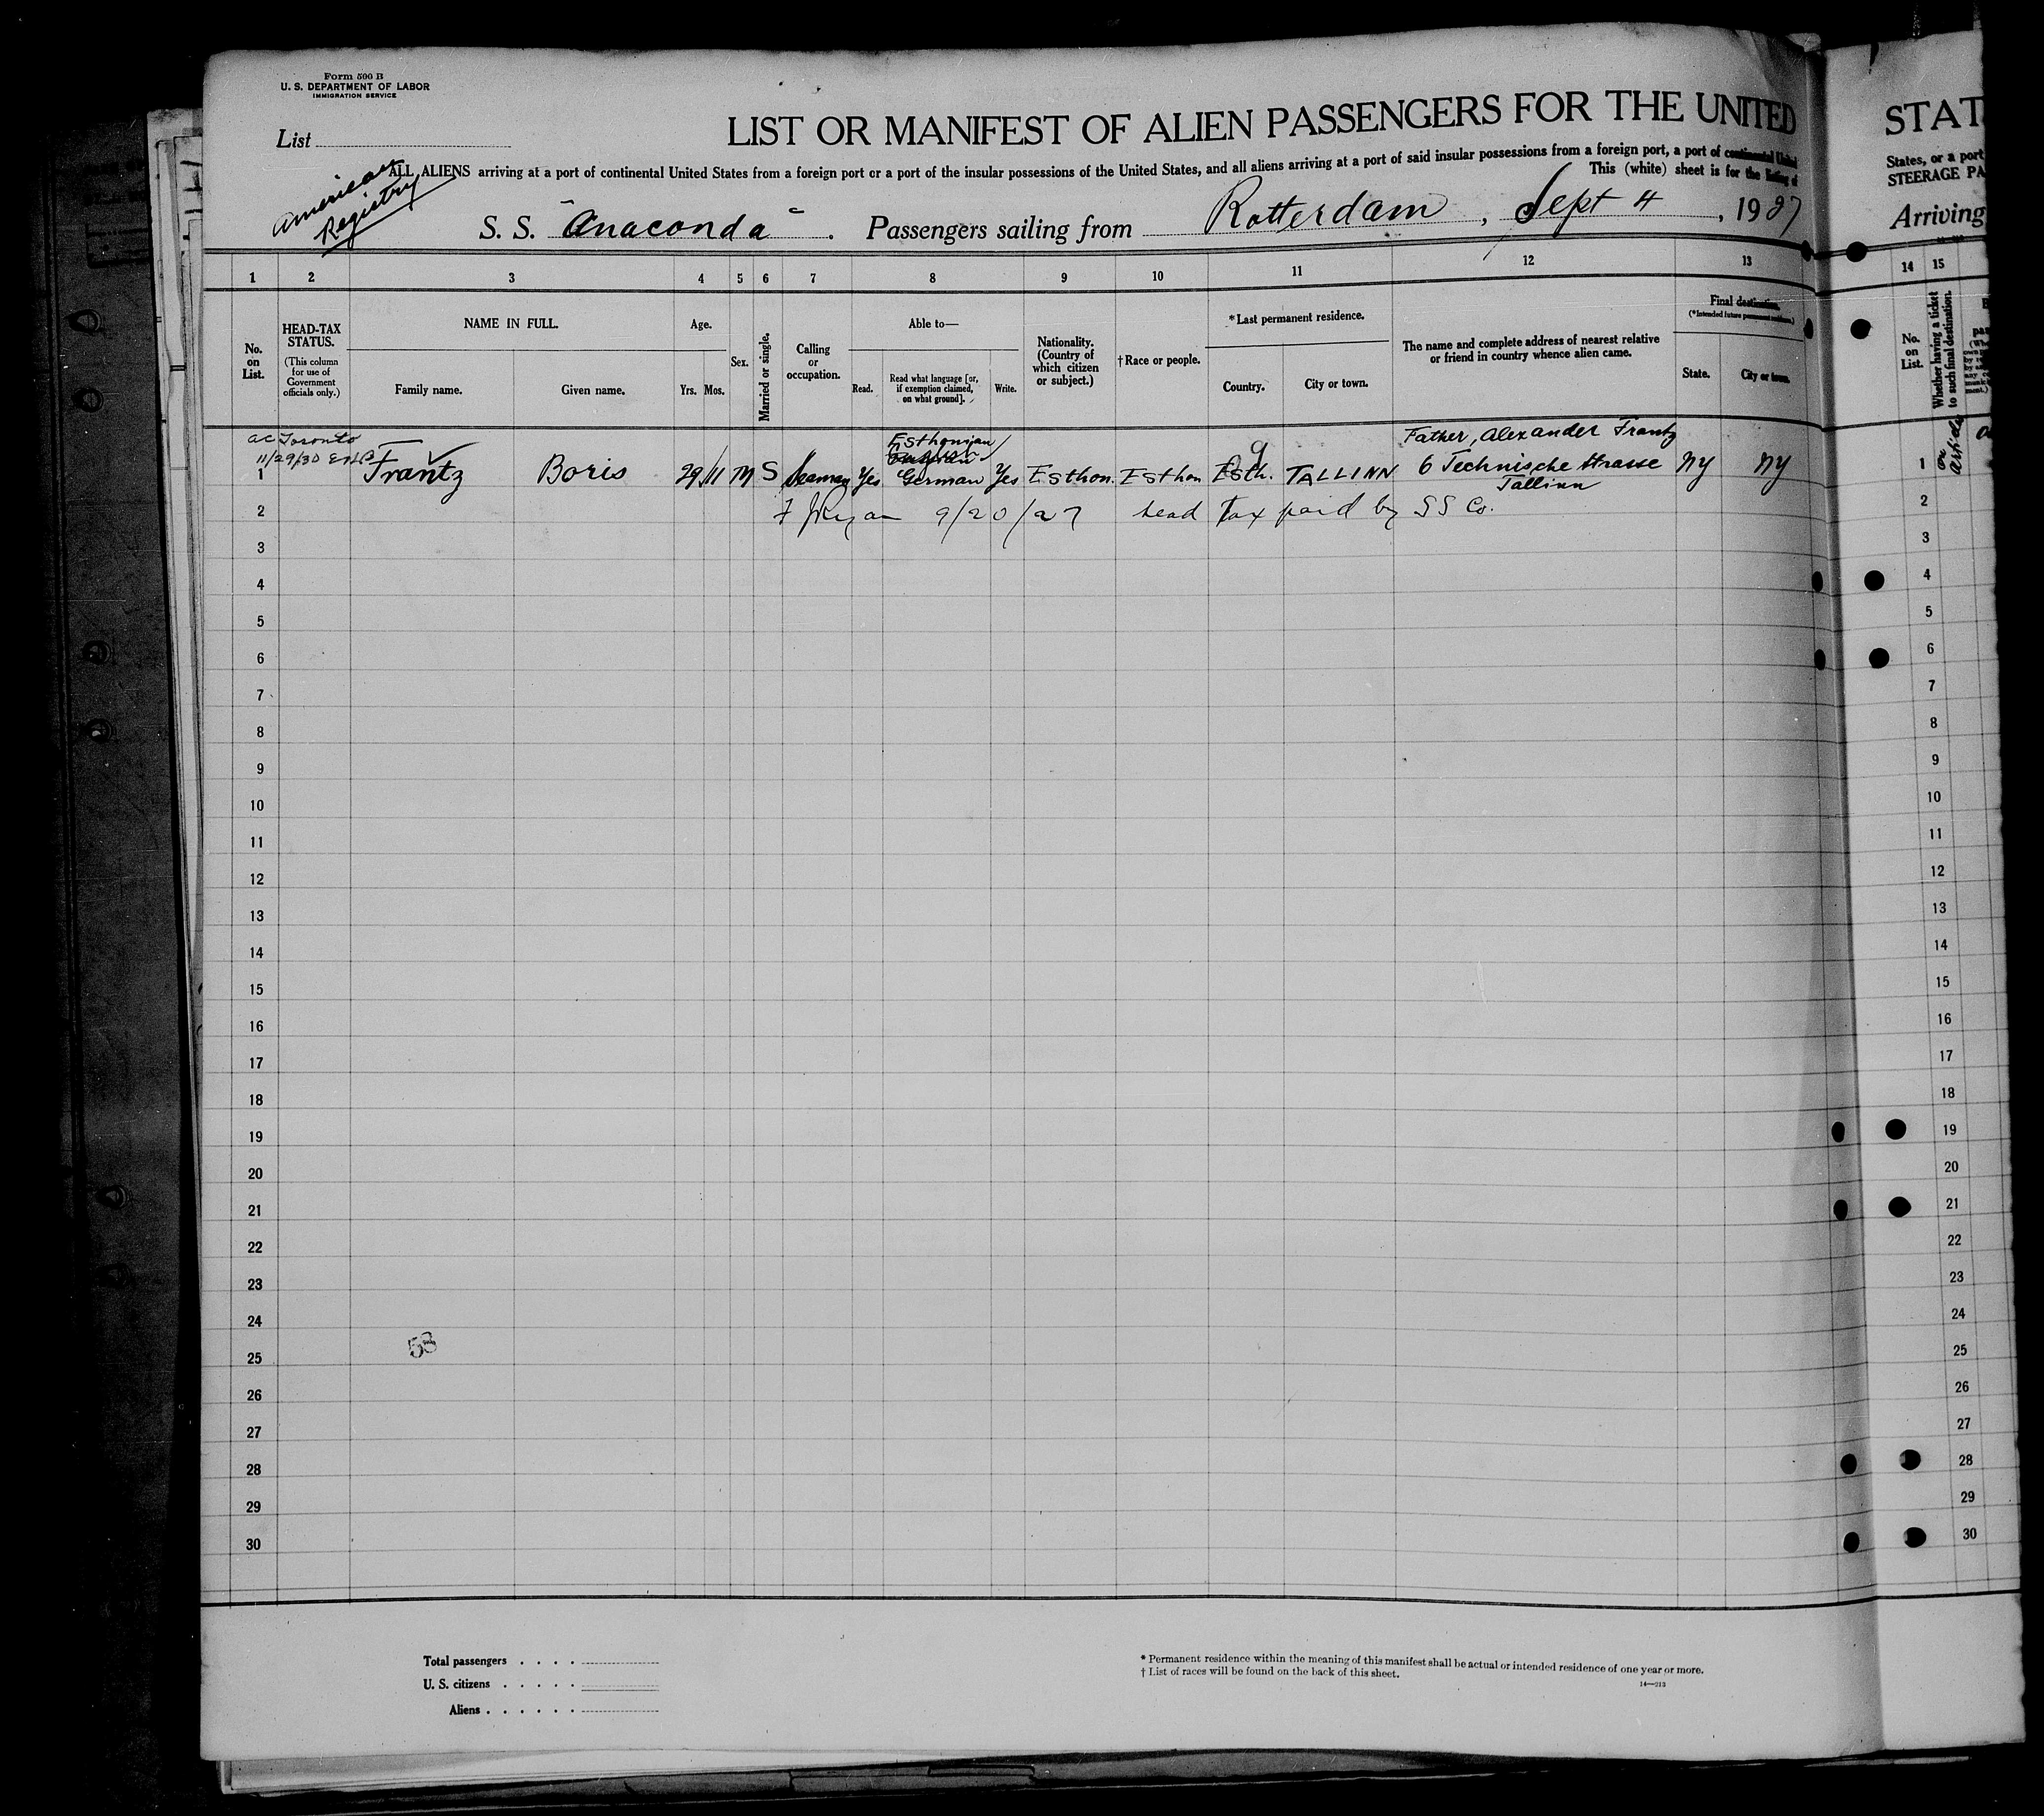 Form 500 B
U. S. DEPARTMENT OF LABOR
IMMIGRATION SERVICE
List
LIST OR MANIFEST OF ALIEN PASSENGERS FOR THE UNITED
ALL ALIENS arriving at a port of continental United States from a foreign port or a port of the insular possessions of the United States, and all aliens arriving at a port of said insular possessions from a foreign port, a port of continental United
This (white) sheet is for the listing of
American
Registry
S. S. "Anaconda". Passengers sailing from Rotterdam, Sept 4, 1927
1 2 3 4 5 6 7 8 9 10 11 12 13
No. on List.
HEAD-TAX STATUS.
(This column for use of Government officials only.)
NAME IN FULL.
Family name. Given name.
Age.
Yrs. Mos.
Sex.
Married or single.
Calling or occupation.
Able to—
Read. Read what language [or, if exemption claimed, on what ground]. Write.
Nationality. (Country of which citizen or subject.)
† Race or people.
* Last permanent residence.
Country. City or town.
The name and complete address of nearest relative or friend in country whence alien came.
Final destination.
(* Intended future permanent residence.)
State. City or town.
ac Toronto
11/29/30
Esthonian
Father, Alexander Frantz
1 Frantz Boris 29 11 M S Seaman Yes German Yes Esthon. Esthon Esth. TALLINN 6 Technische strasse NY NY
Tallinn
2 9/20/27 head Tax paid by S S Co.
3
4
5
6
7
8
9
10
11
12
13
14
15
16
17
18
19
20
21
22
23
24
58
25
26
27
28
29
30
Total passengers
U. S. citizens
Aliens
* Permanent residence within the meaning of this manifest shall be actual or intended residence of one year or more.
† List of races will be found on the back of this sheet.
14—213
STAT
States, or a port
STEERAGE PA
Arriving
14 15
No. on List.
Whether having a ticket to such final destination.
1
2
3
4
5
6
7
8
9
10
11
12
13
14
15
16
17
18
19
20
21
22
23
24
25
26
27
28
29
30